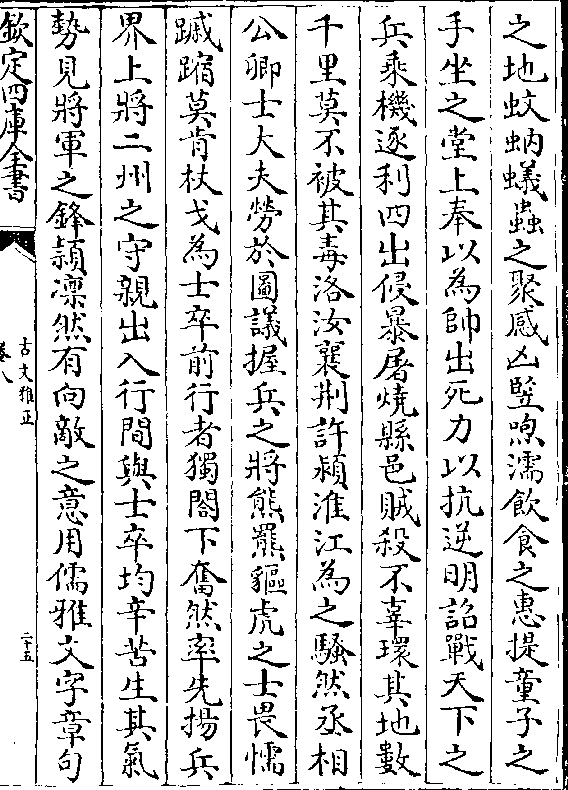 之地蚊蚋蟻蟲之聚感凶豎喣濡飲食之惠提童子之
手坐之堂上奉以為帥出死力以抗逆明詔戰天下之
兵乗機逐利四出侵暴屠燒縣邑賊殺不辜環其地數
千里莫不被其毒洛汝襄荆許潁淮江為之騷然丞相
公卿士大夫勞於圖議握兵之將熊羆貙虎之士畏懦
蹴蹜莫肯杖戈為士卒前行者獨閤下奮然率先揚兵
界上將二州之守親出入行間與士卒均辛苦生其氣
勢見將軍之鋒穎凛然有向敵之意用儒雅文字章句
欽定四庫全書
古文雅正
卷八
二十五